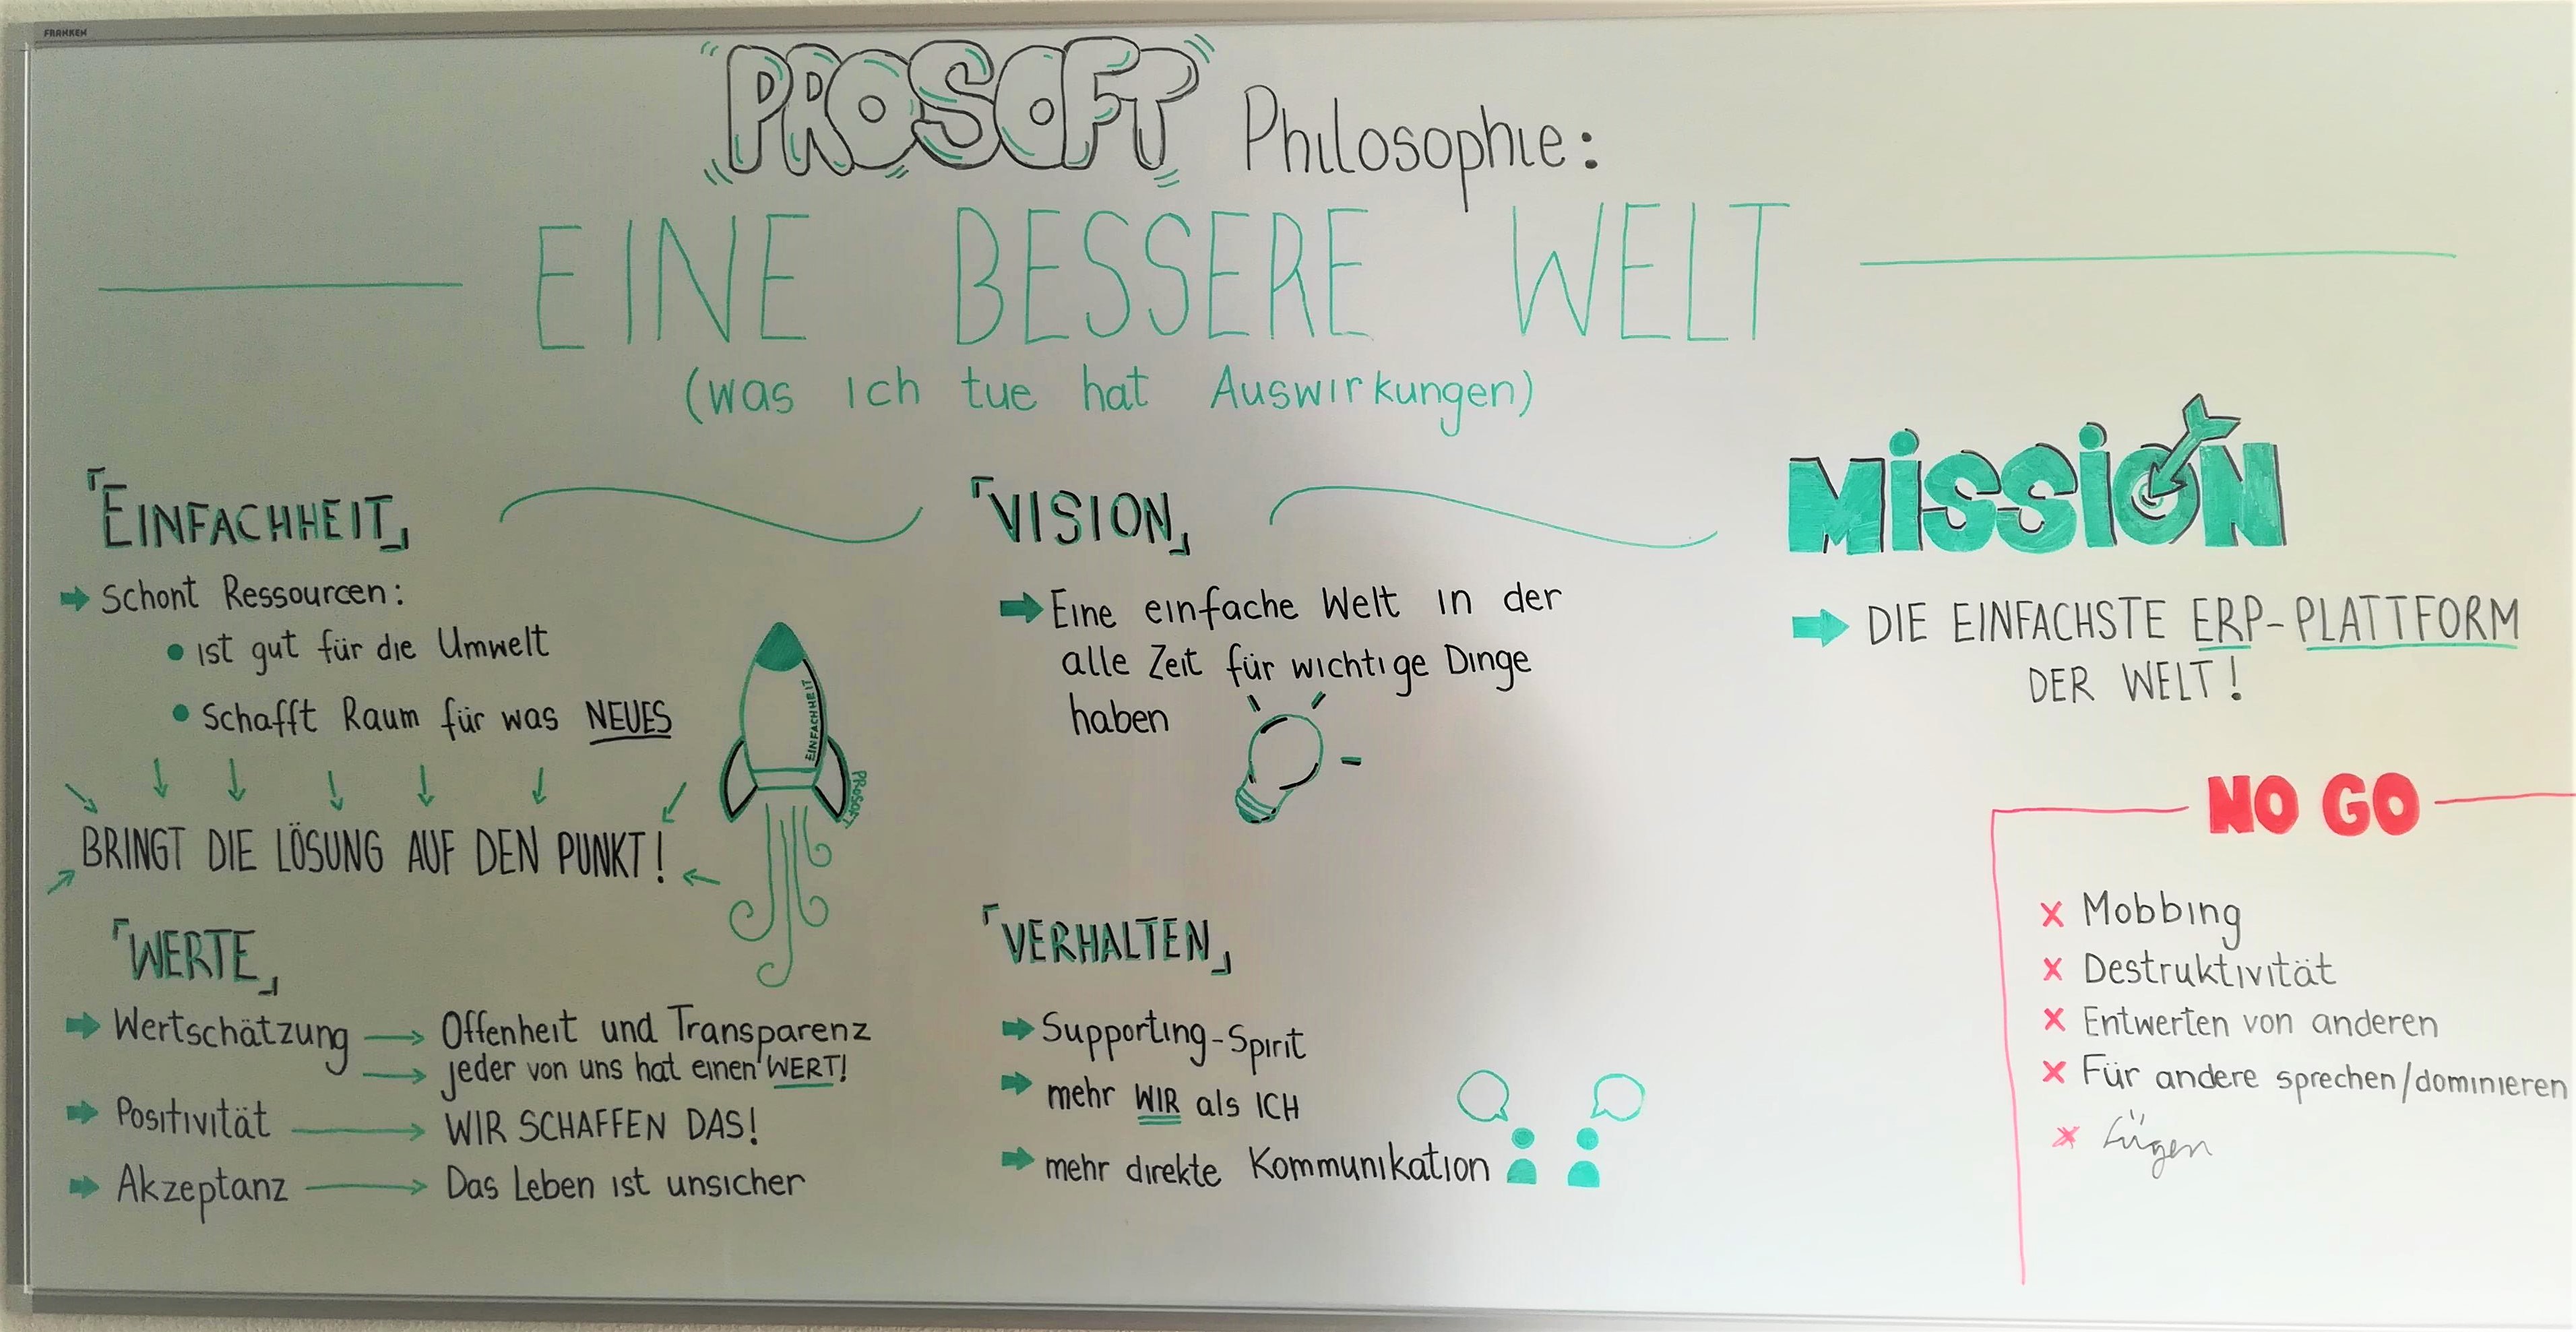 FRANKEN
PROSOFT Philosophie:
EINE BESSERE WELT
(was ich tue hat Auswirkungen)
EINFACHHEIT
Schont Ressourcen:
ist gut für die Umwelt
Schafft Raum für was NEUES
BRINGT DIE LÖSUNG AUF DEN PUNKT!
EINFACHHEIT
PROSOFT
VISION
Eine einfache Welt in der
alle Zeit für wichtige Dinge
haben
MISSION
DIE EINFACHSTE ERP-PLATTFORM
DER WELT!
WERTE
Wertschätzung Offenheit und Transparenz
jeder von uns hat einen WERT!
Positivität WIR SCHAFFEN DAS!
Akzeptanz Das Leben ist unsicher
VERHALTEN
Supporting-Spirit
mehr WIR als ICH
mehr direkte Kommunikation
NO GO
x Mobbing
x Destruktivität
x Entwerten von anderen
x Für andere sprechen/dominieren
x Lügen